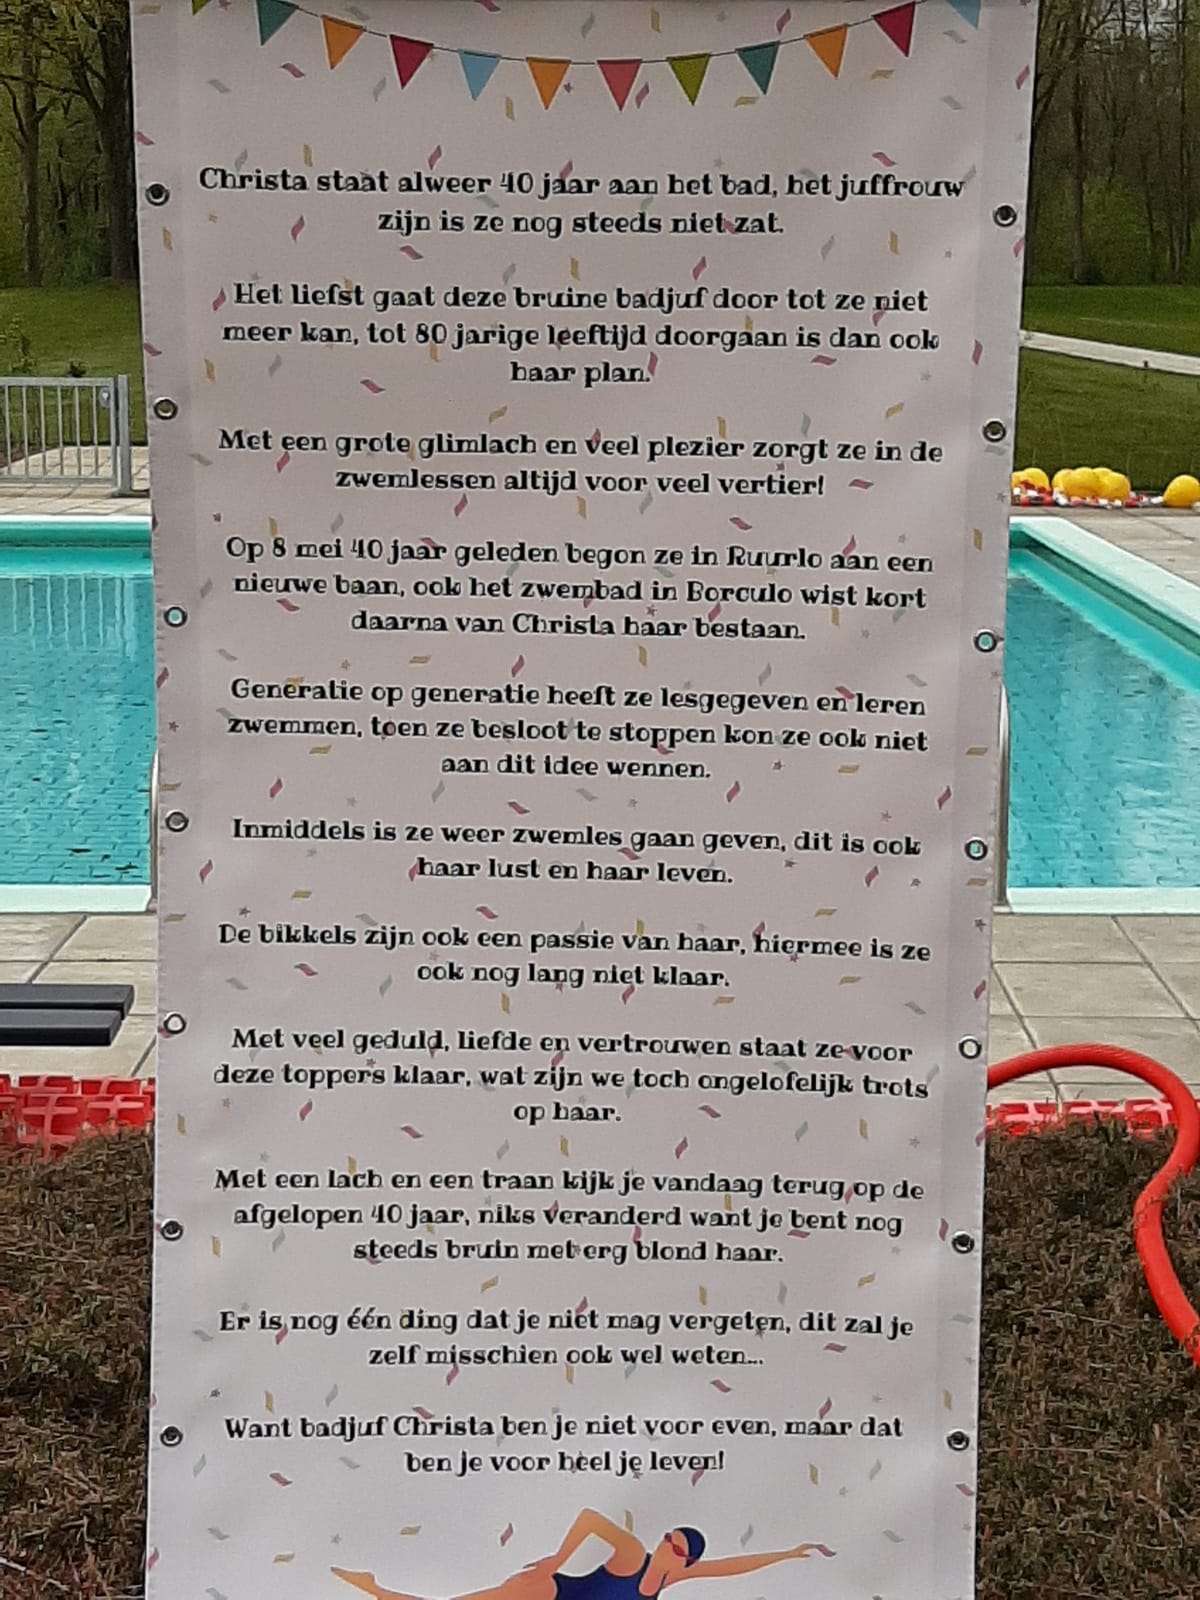 Christa staat alweer 40 jaar aan het bad, het juffrouw
zijn is ze nog steeds niet zat.
Het liefst gaat deze bruine badjuf door tot ze niet
meer kan, tot 80 jarige leeftijd doorgaan is dan ook
haar plan.
Met een grote glimlach en veel plezier zorgt ze in de
zwemlessen altijd voor veel vertier!
Op 8 mei 40 jaar geleden begon ze in Ruurlo aan een
nieuwe baan, ook het zwembad in Borculo wist kort
daarna van Christa haar bestaan.
Generatie op generatie heeft ze lesgegeven en leren
zwemmen, toen ze besloot te stoppen kon ze ook niet
aan dit idee wennen.
Inmiddels is ze weer zwemles gaan geven, dit is ook
haar lust en haar leven.
De bikkels zijn ook een passie van haar, hiermee is ze
ook nog lang niet klaar.
Met veel geduld, liefde en vertrouwen staat ze voor
deze toppers klaar, wat zijn we toch ongelofelijk trots
op haar.
Met een lach en een traan kijk je vandaag terug op de
afgelopen 40 jaar, niks veranderd want je bent nog
steeds bruin met erg blond haar.
Er is nog één ding dat je niet mag vergeten, dit zal je
zelf misschien ook wel weten...
Want badjuf Christa ben je niet voor even, maar dat
ben je voor heel je leven!